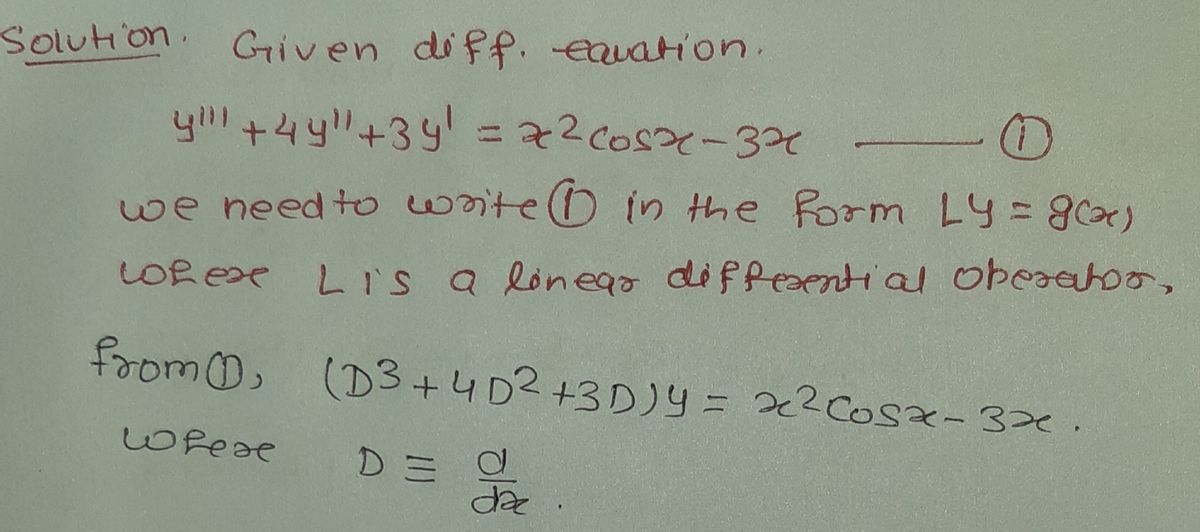 Solution. Given diff. equation.
y''' + 4y'' + 3y' = x² cosx - 3x —— ①
we need to write ① in the form Ly = g(x)
where L is a linear differential operator,
from ①, (D³ + 4D² + 3D)y = x² cosx - 3x.
where D ≡ d/dx.